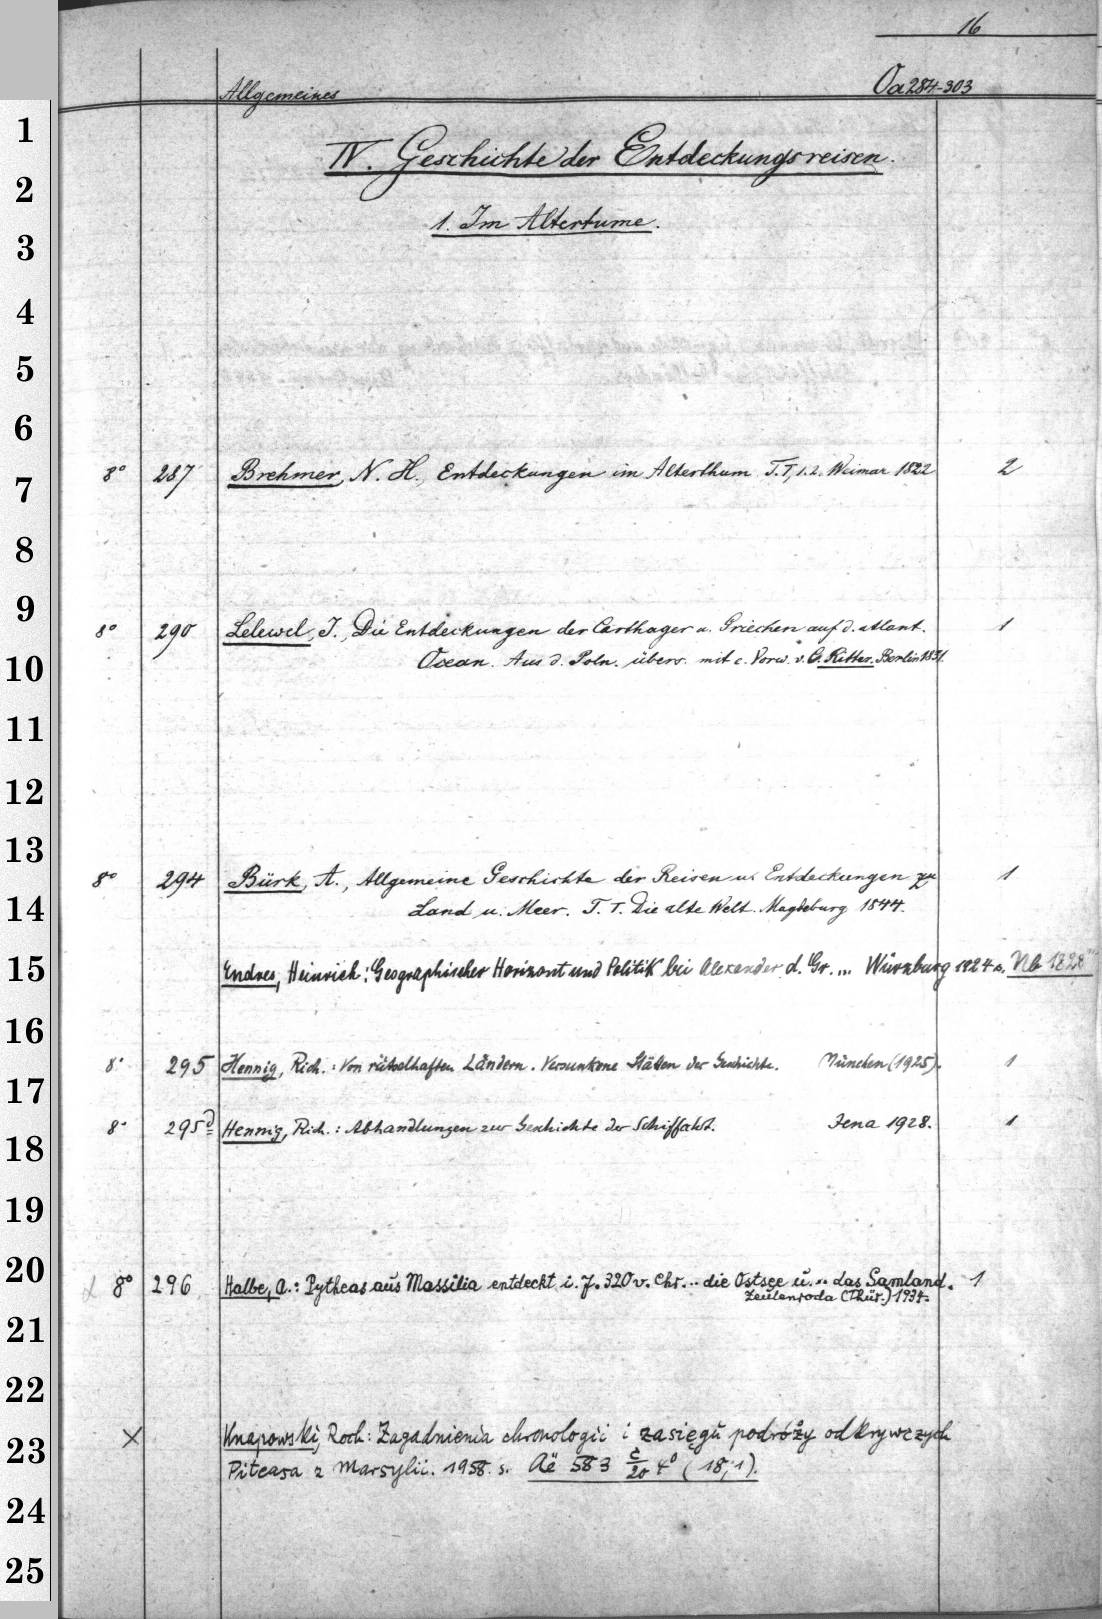 16
Allgemeines Oa 284-303
IV. Geschichte der Entdeckungsreisen.
1. Im Altertume.
8° 287 Brehmer, N. H., Entdeckungen im Alterthum. T. I, 1.2. Weimar 1822 2
8° 290 Lelewel, J., Die Entdeckungen der Carthager u. Griechen auf d. atlant. 1
Ocean. Aus d. Poln. übers. mit e. Vorw. v. C. Ritter. Berlin 1831.
8° 294 Bürk, A., Allgemeine Geschichte der Reisen u. Entdeckungen zu 1
Land u. Meer. T. I. Die alte Welt. Magdeburg 1844.
Endres, Heinrich: Geographischer Horizont und Politik bei Alexander d. Gr. ... Würzburg 1924 s. Nb 1828
8° 295 Hennig, Rich.: Von rätselhaften Ländern. Versunkene Stätten der Geschichte. München (1925). 1
8° 295d Hennig, Rich.: Abhandlungen zur Geschichte der Schiffahrt. Jena 1928. 1
8° 296 Halbe, A.: Pytheas aus Massilia entdeckt i. J. 320 v. Chr. .. die Ostsee u. .. das Samland. 1
Zeulenroda (Thür.) 1934.
X Knapowski, Roch: Zagadnienia chronologii i zasięgu podróży odkrywczych
Piteasa z Marsylii. 1958. s. Aë 583 č/20 4° (18,1).
1
2
3
4
5
6
7
8
9
10
11
12
13
14
15
16
17
18
19
20
21
22
23
24
25